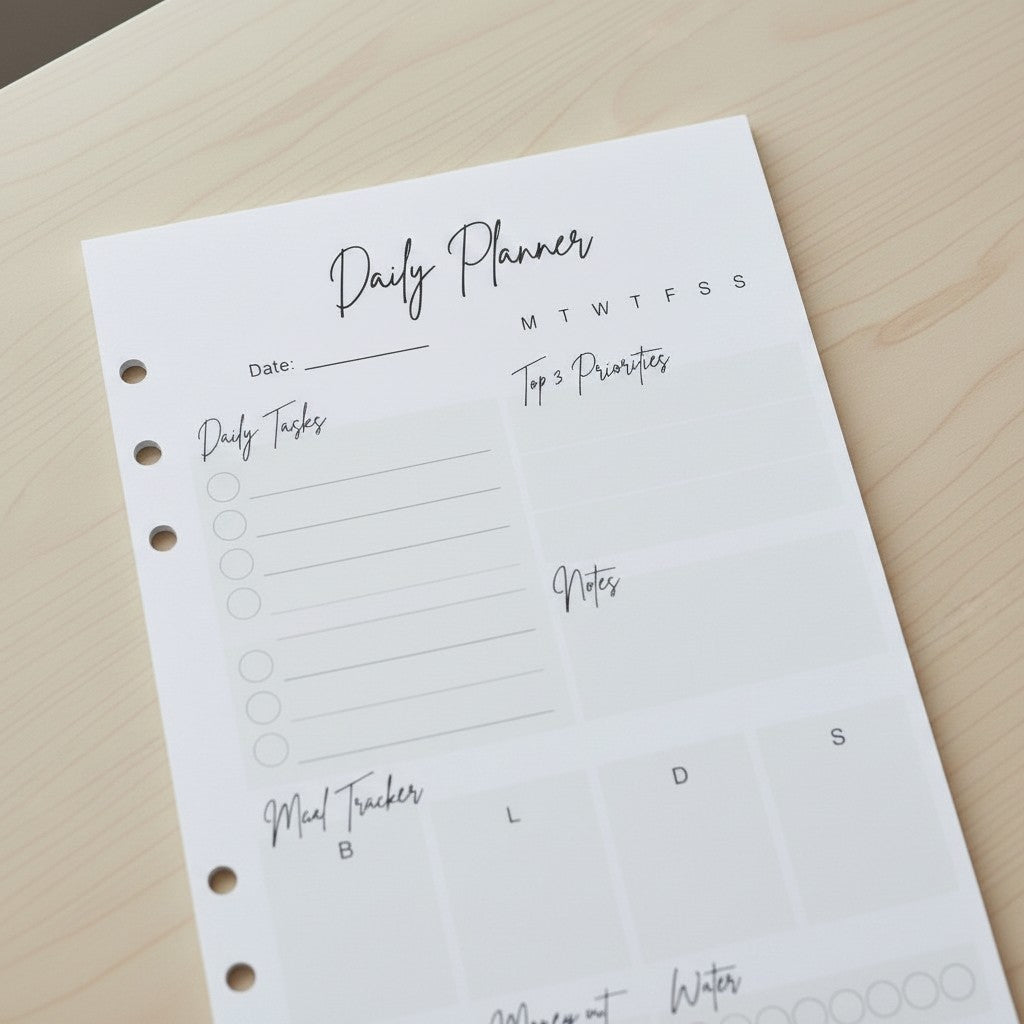 Daily Planner
M T W T F S S
Date:
Top 3 Priorities
Daily Tasks
Notes
Meal Tracker
B L D S
Money out
Water